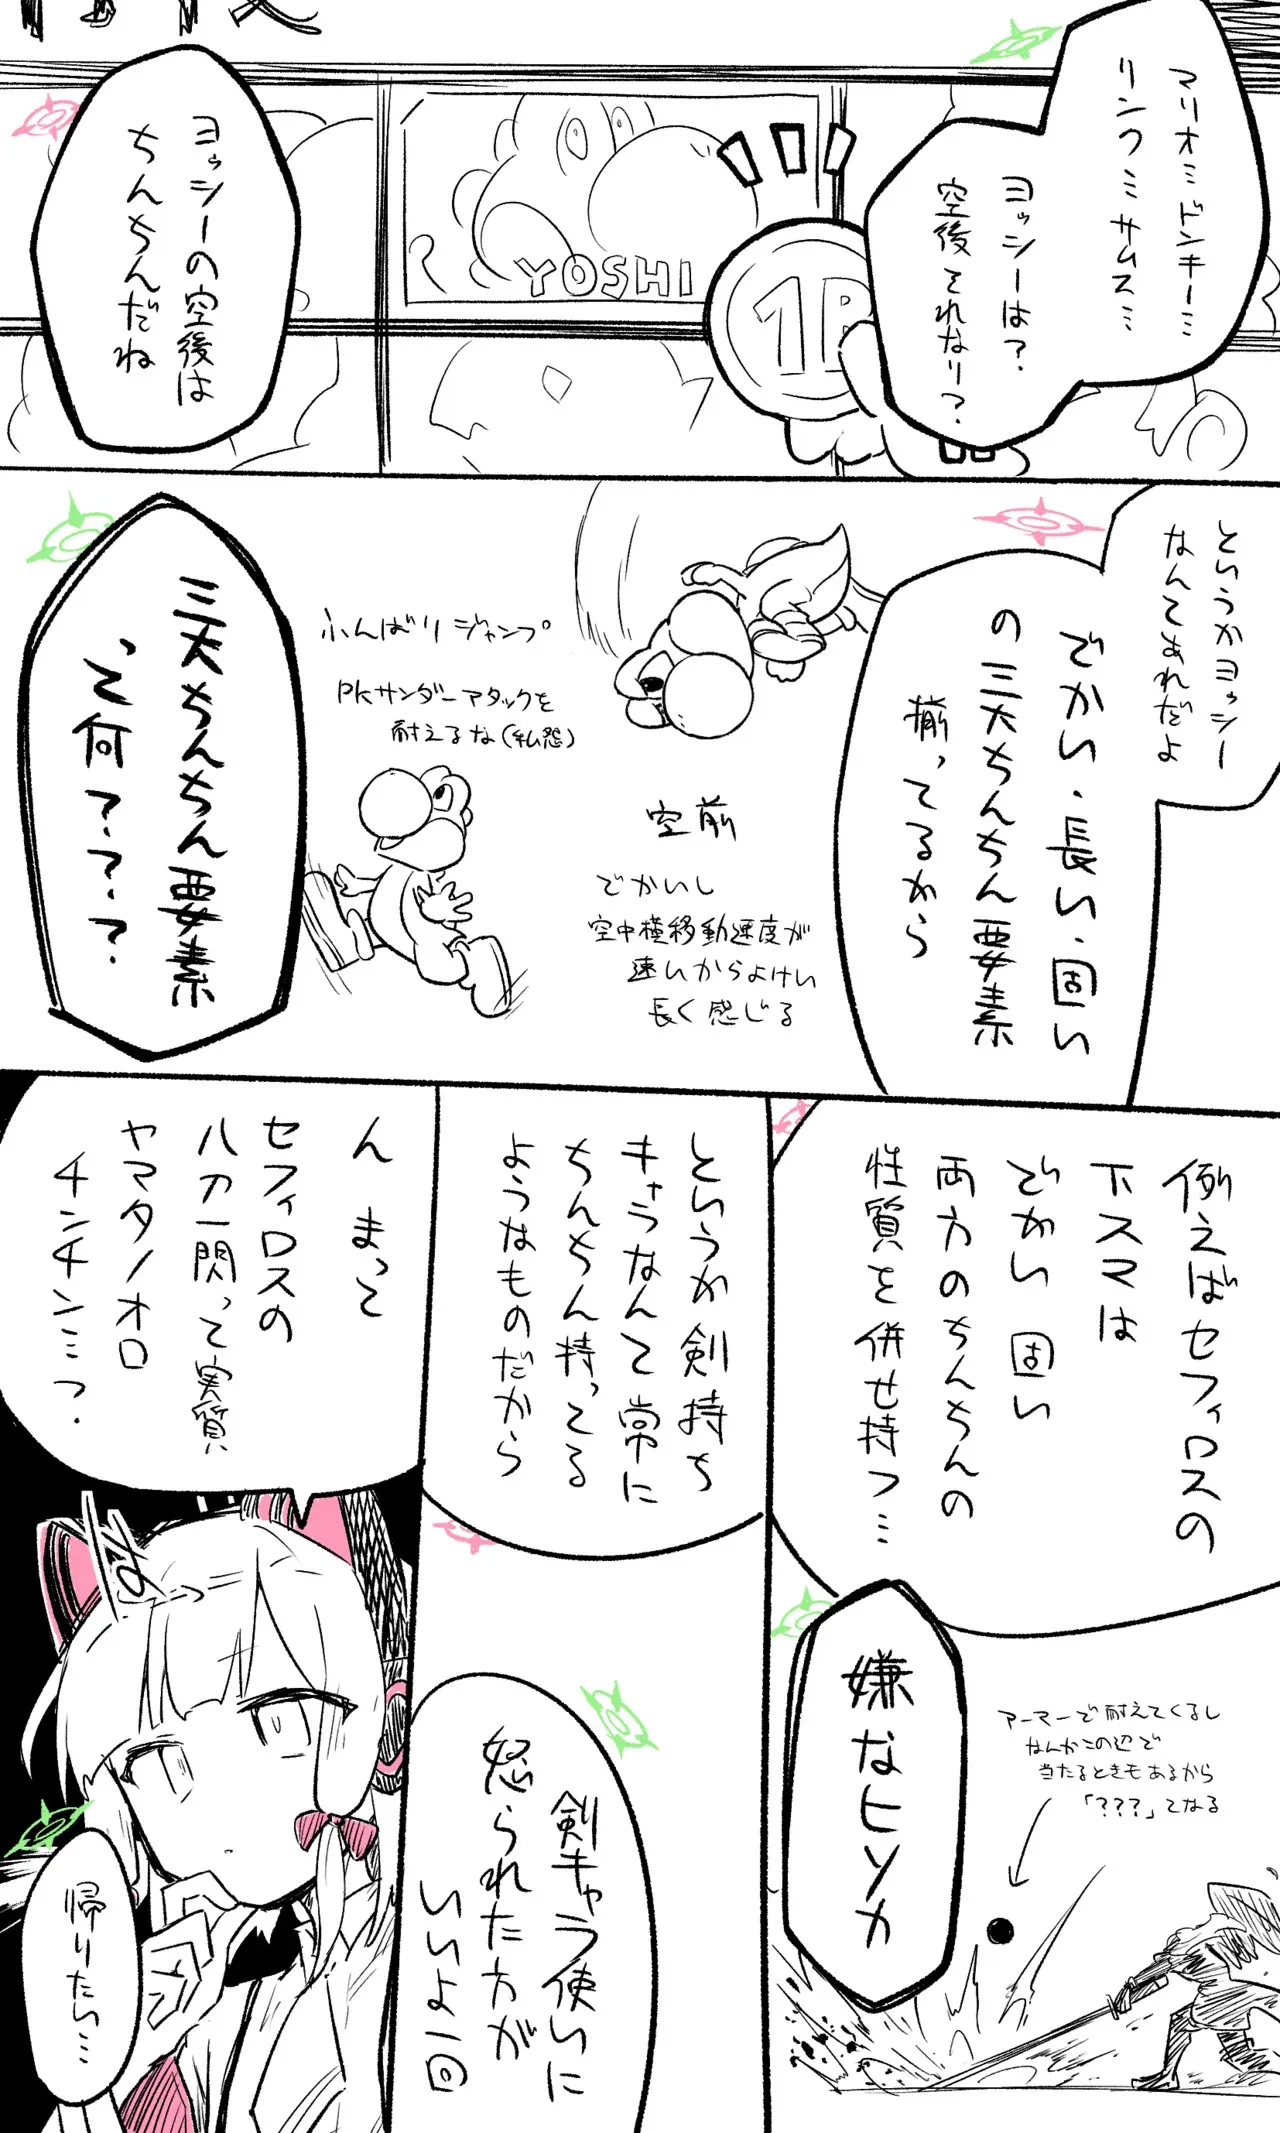 マリオ…ドンキー…
リンク…サムス…
ヨッシーは?
空後それなり?
YOSHI
1P
ヨッシーの空後は
ちんちんだね
というかヨッシー
なんてあれだよ
でかい・長い・固い
の三大ちんちん要素
揃ってるから
空前
でかいし
空中横移動速度が
速いからよけい
長く感じる
ふんばりジャンプ
PKサンダーアタックを
耐えるな(私怨)
三大ちんちん要素
って何?・?・?
例えばセフィロスの
下スマは
でかい 固い
両方のちんちんの
性質を併せ持つ…
嫌なヒソカ
アーマーで耐えてくるし
なんかこの辺で
当たるときもあるから
「???」てなる
というか剣持ち
キャラなんて常に
ちんちん持ってる
ようなものだから
剣キャラ使いに
怒られた方が
いいよ一回
ん まって
セフィロスの
八刀一閃って実質
ヤマタノオロ
チンチン…?
帰りたい…